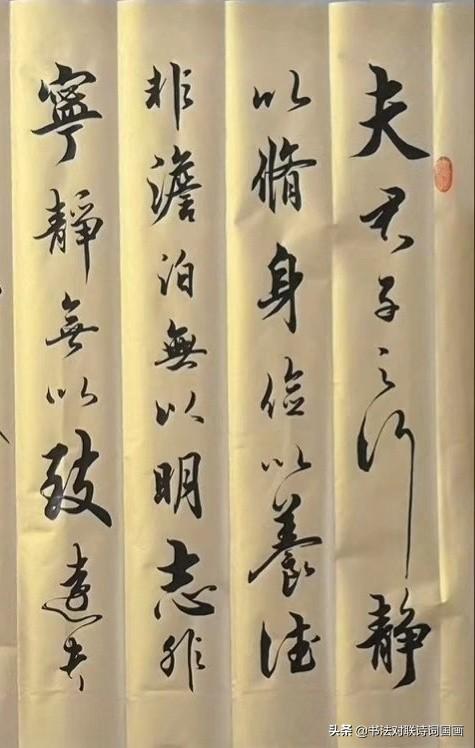 夫君子之行静
以脩身俭以養德
非澹泊無以明志非
寧靜無以致遠夫
头条 @书法对联诗词国画